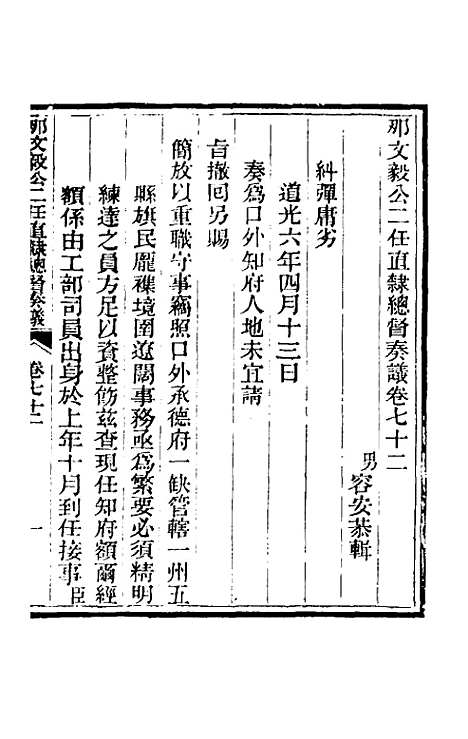 那文毅公二任直隸總督奏議卷七十二
男 容安恭輯
糾彈庸劣
道光六年四月十三日
奏爲口外知府人地未宜請
旨撤回另賜
簡放以重職守事竊照口外承德府一缺管轄一州五
縣旗民龐襍境圍遼闊事務亟爲繁要必須精明
練達之員方足以資整飭茲查現任知府額爾經
額係由工部司員出身於上年十月到任接事臣
那文毅公二任直隸總督奏議 卷七十二 一